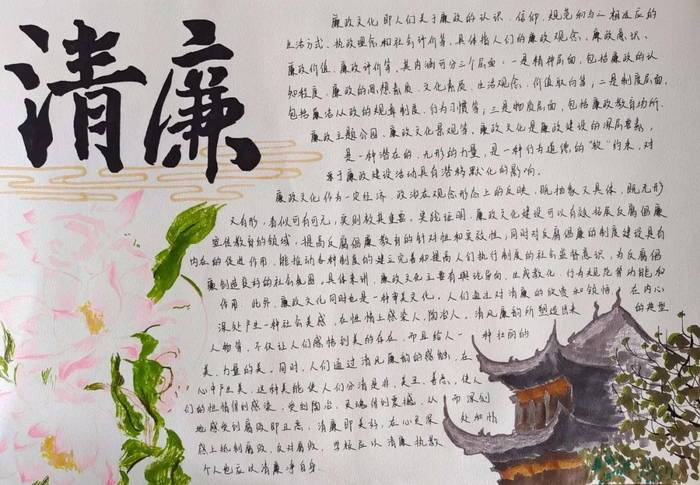 清廉
廉政文化即人们关于廉政的认识、信仰、规范和与之相适应的
生活方式、执政理念和社会评价等，具体指人们的廉政观念、廉政意识、
廉政价值、廉政评价等，其内涵可分三个层面：一是精神层面，包括廉政的认
知程度、廉政的思想素质、文化素质、生活观念、价值取向等；二是制度层面，
包括廉洁从政的规章制度、行为习惯等；三是物质层面，包括廉政教育场所、
廉政主题公园、廉政文化景观等。廉政文化是廉政建设的深层要素，
是一种潜在的、无形的力量，是一种行为道德的“软”约束，对
于廉政建设活动具有潜移默化的影响。
廉政文化作为一定经济、政治在观念形态上的反映，既抽象又具体，既无形
又有形，看似可有可无，实则较其重要。实践证明，廉政文化建设可以有效拓展反腐倡廉
宣传教育的领域，提高反腐倡廉教育的针对性和实效性，同时对反腐倡廉的制度建设具有
内在的促进作用，能推动各种制度的建立完善和提高人们执行制度的社会监督意识，为反腐倡
廉创造良好的社会氛围。具体来讲，廉政文化主要有舆论导向、生成教化、行为规范等功能和
作用。此外，廉政文化同时也是一种审美文化。人们通过对清廉的欣赏和领悟，在内心
深处产生一种社会美感，在性情上感染人、陶冶人，清风廉韵所塑造出来的典型
人物等，不仅让人们感悟到美的存在，而且给人一种壮丽的
美、力量的美，同时，人们通过清风廉韵的感触，在
心中产生美。这种美能使人们分清是非、美丑、善恶，使人
们的性情得到感染、受到陶冶，灵魂得到震撼，从而深刻
地感受到腐败即丑恶，清廉即美好，在心灵深处和情
感上抵制腐败，反对腐败。当权应以清廉执政
个人也应以清廉净自身。